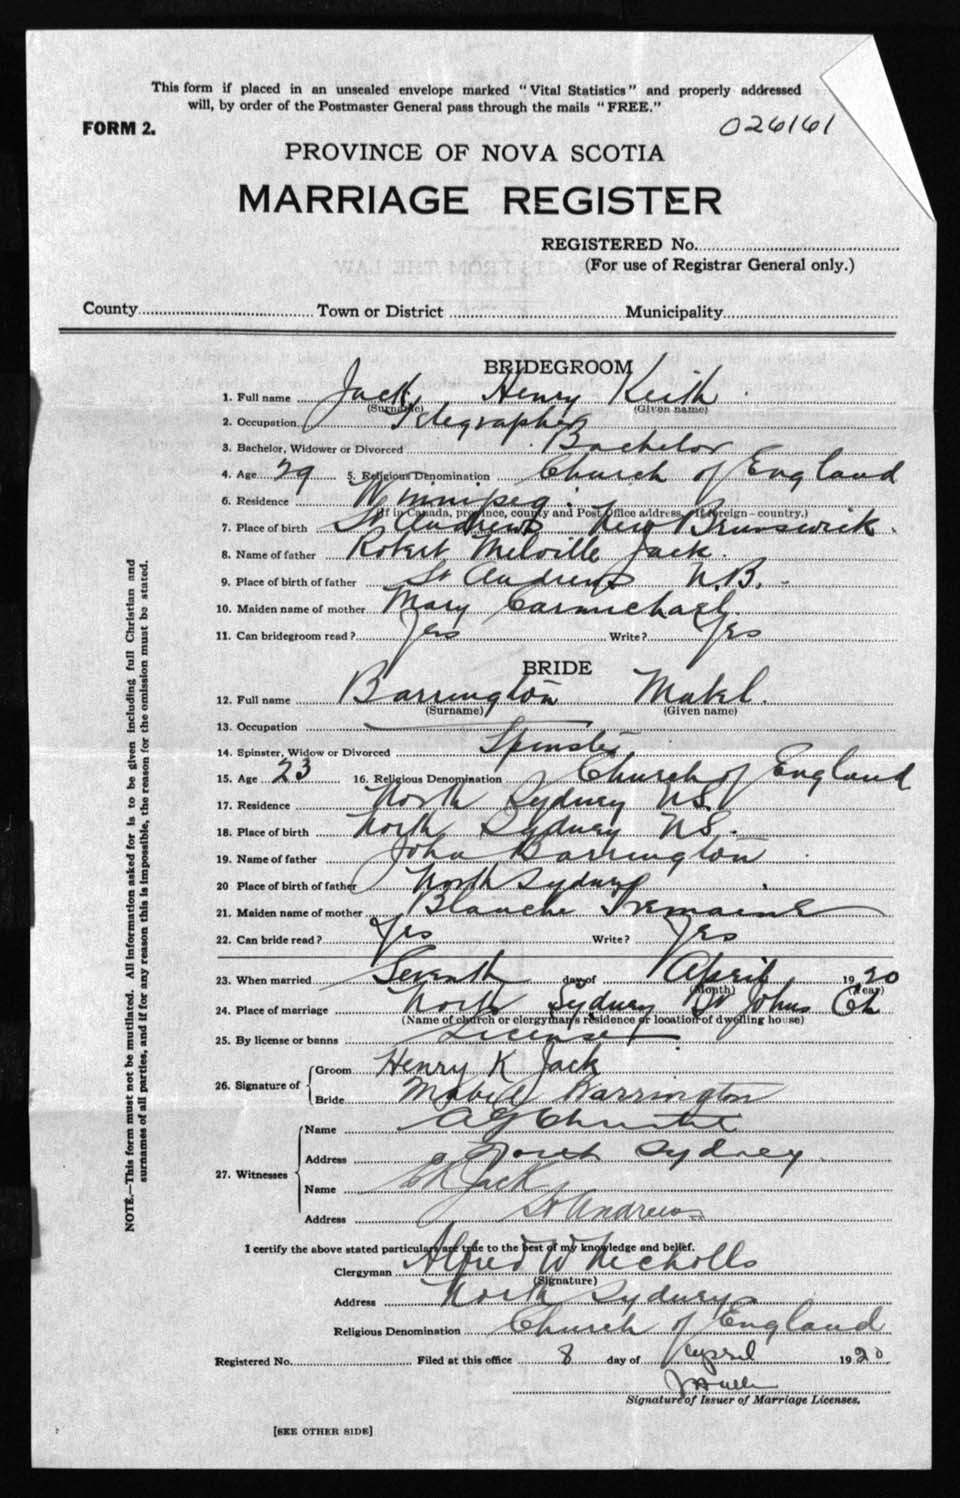 This form if placed in an unsealed envelope marked "Vital Statistics" and properly addressed
will, by order of the Postmaster General pass through the mails "FREE."
FORM 2.
026161
PROVINCE OF NOVA SCOTIA
MARRIAGE REGISTER
REGISTERED No.
(For use of Registrar General only.)
County Town or District Municipality
BRIDEGROOM
1. Full name Jack Henry Keith
(Surname) (Given name)
2. Occupation Telegrapher
3. Bachelor, Widower or Divorced Bachelor
4. Age 29 5. Religious Denomination Church of England
6. Residence Winnipeg
(If in Canada, province, county and Post Office address, if foreign - country.)
7. Place of birth St Andrews New Brunswick.
8. Name of father Robert Melville Jack.
9. Place of birth of father St Andrews N.B.
10. Maiden name of mother Mary Carmichael.
11. Can bridegroom read? Yes Write? Yes
BRIDE
12. Full name Barrington Mabel.
(Surname) (Given name)
13. Occupation
14. Spinster, Widow or Divorced Spinster.
15. Age 23 16. Religious Denomination Church of England
17. Residence North Sydney NS.
18. Place of birth North Sydney NS.
19. Name of father John Barrington
20 Place of birth of father North Sydney
21. Maiden name of mother Blanche Tremaine
22. Can bride read? Yes Write? Yes
23. When married Seventh day of April 1920
(Month) (Year)
24. Place of marriage North Sydney St Johns Ch
(Name of church or clergyman's residence or location of dwelling house)
25. By license or banns License
26. Signature of Groom Henry K Jack
Bride Mabel Barrington
27. Witnesses Name A G Christie
Address North Sydney
Name Jack
Address St Andrews
I certify the above stated particulars are true to the best of my knowledge and belief.
Clergyman Alfred W Nicholls
(Signature)
Address North Sydney
Religious Denomination Church of England
Registered No. Filed at this office 8 day of April 1920
Signature of Issuer of Marriage Licenses.
[SEE OTHER SIDE]
NOTE.—This form must not be mutilated. All information asked for is to be given including full Christian and
surnames of all parties, and if for any reason this is impossible, the reason for the omission must be stated.